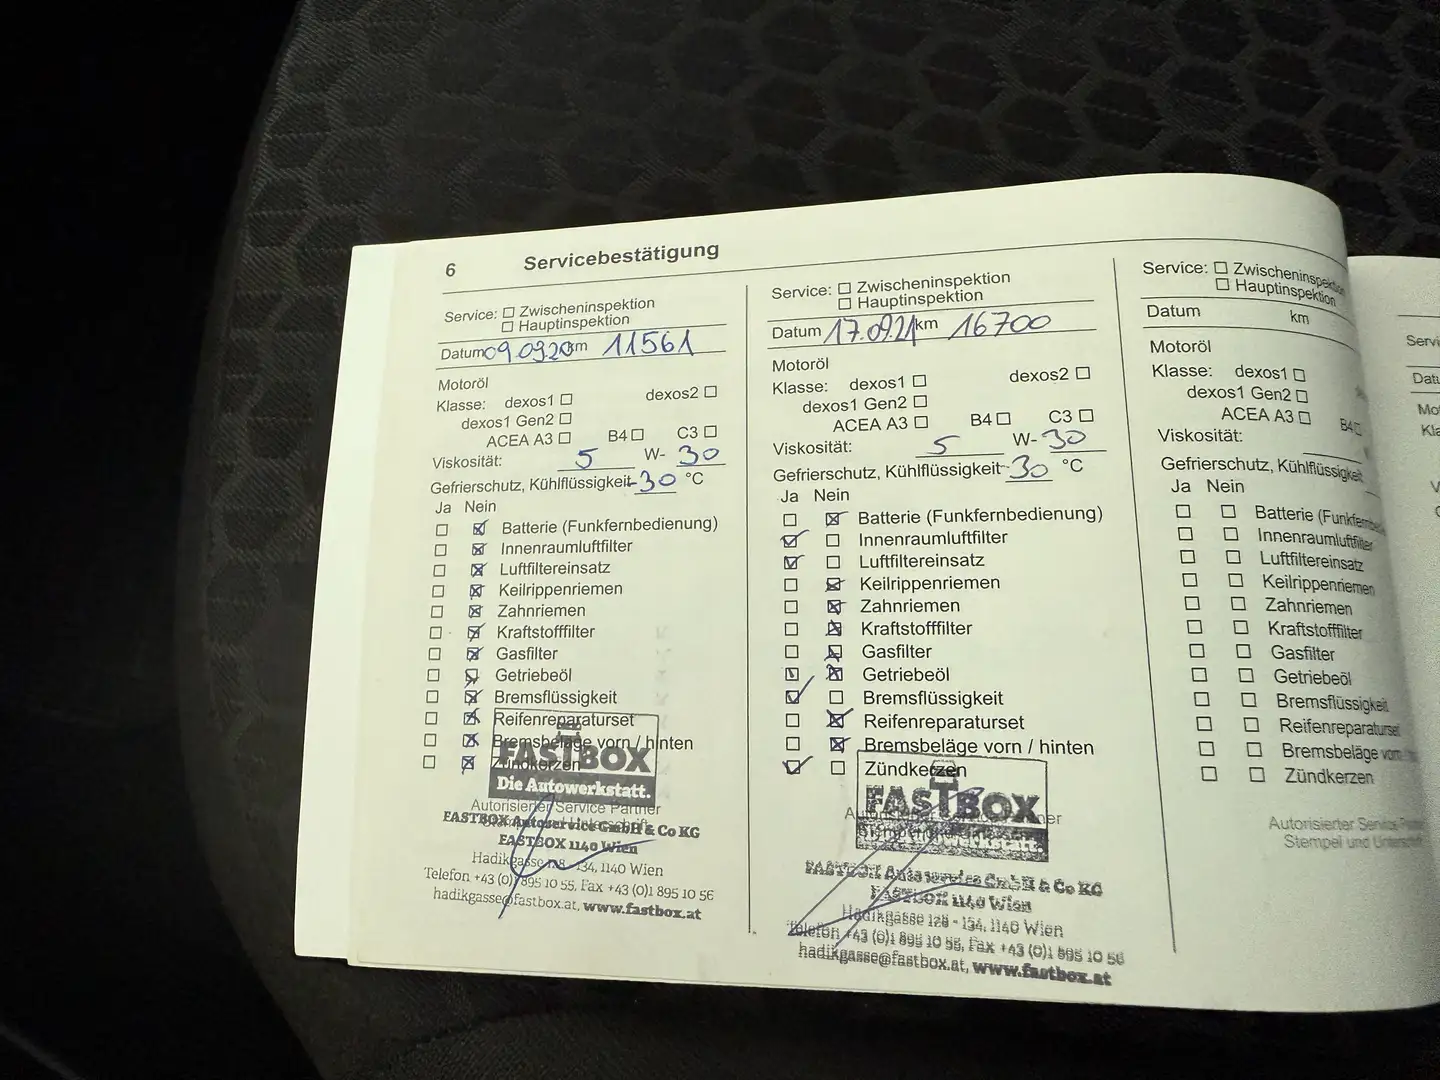 6 Servicebestätigung
Service: ☐ Zwischeninspektion
☐ Hauptinspektion
Datum 09.09.20 km 11561
Motoröl
Klasse: dexos1 ☐ dexos2 ☐
dexos1 Gen2 ☐
ACEA A3 ☐ B4 ☐ C3 ☐
Viskosität: 5 W- 30
Gefrierschutz, Kühlflüssigkeit -30 °C
Ja Nein
☐ ☒ Batterie (Funkfernbedienung)
☐ ☒ Innenraumluftfilter
☐ ☒ Luftfiltereinsatz
☐ ☒ Keilrippenriemen
☐ ☒ Zahnriemen
☐ ☒ Kraftstofffilter
☐ ☒ Gasfilter
☐ ☒ Getriebeöl
☐ ☒ Bremsflüssigkeit
☐ ☒ Reifenreparaturset
☐ ☒ Bremsbeläge vorn / hinten
☐ ☒ Zündkerzen
FASTBOX
Die Autowerkstatt.
Autorisierter Service Partner
FASTBOX Autoservice GmbH & Co KG
FASTBOX 1140 Wien
Hadikgasse 128 - 134, 1140 Wien
Telefon +43 (0)1 895 10 55, Fax +43 (0)1 895 10 56
hadikgasse@fastbox.at, www.fastbox.at
Service: ☐ Zwischeninspektion
☐ Hauptinspektion
Datum 17.09.21 km 16700
Motoröl
Klasse: dexos1 ☐ dexos2 ☐
dexos1 Gen2 ☐
ACEA A3 ☐ B4 ☐ C3 ☐
Viskosität: 5 W- 30
Gefrierschutz, Kühlflüssigkeit -30 °C
Ja Nein
☐ ☒ Batterie (Funkfernbedienung)
☑ ☐ Innenraumluftfilter
☑ ☐ Luftfiltereinsatz
☐ ☒ Keilrippenriemen
☐ ☒ Zahnriemen
☐ ☒ Kraftstofffilter
☐ ☒ Gasfilter
☑ ☒ Getriebeöl
☑ ☐ Bremsflüssigkeit
☐ ☒ Reifenreparaturset
☐ ☒ Bremsbeläge vorn / hinten
☑ ☐ Zündkerzen
FASTBOX
FASTBOX Autoservice GmbH & Co KG
FASTBOX 1140 Wien
Hadikgasse 128 - 134, 1140 Wien
Telefon +43 (0)1 895 10 55, Fax +43 (0)1 895 10 56
hadikgasse@fastbox.at, www.fastbox.at
Service: ☐ Zwischeninspektion
☐ Hauptinspektion
Datum km
Motoröl
Klasse: dexos1 ☐
dexos1 Gen2 ☐
ACEA A3 ☐ B4 ☐
Viskosität:
Gefrierschutz, Kühlflüssigkeit
Ja Nein
☐ ☐ Batterie
☐ ☐ Innenraumluftfilter
☐ ☐ Luftfiltereinsatz
☐ ☐ Keilrippenriemen
☐ ☐ Zahnriemen
☐ ☐ Kraftstofffilter
☐ ☐ Gasfilter
☐ ☐ Getriebeöl
☐ ☐ Bremsflüssigkeit
☐ ☐ Reifenreparaturset
☐ ☐ Bremsbeläge
☐ ☐ Zündkerzen
Autorisierter Service
Stempel und